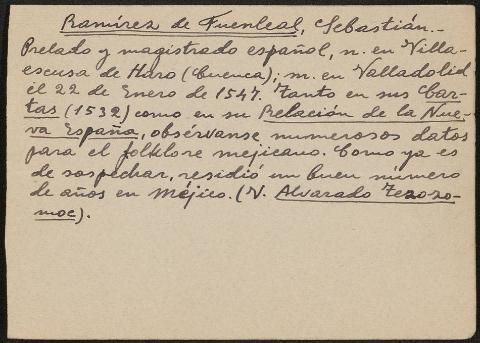 Ramírez de Fuenleal, Sebastián.-
Prelado y magistrado español, n. en Villa-
escusa de Haro (Cuenca); m. en Valladolid
el 22 de Enero de 1547. Tanto en sus Car-
tas (1532) como en su Relación de la Nue-
va España, obsérvanse numerosos datos
para el folklore mejicano. Como ya es
de sospechar, residió un buen número
de años en Méjico. (V. Alvarado Tezozo-
moc).